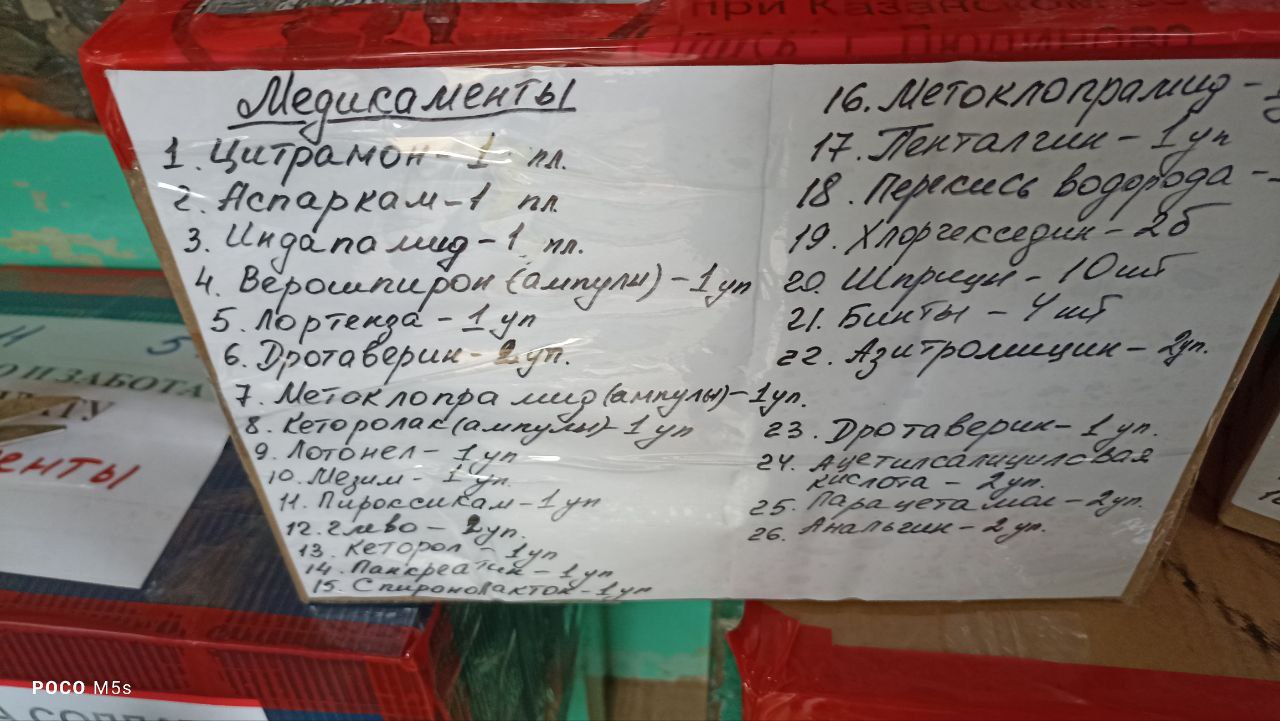 при Казанском
г. Людиново
Медикаменты
1. Цитрамон - 1 пл.
2. Аспаркам - 1 пл.
3. Индапамид - 1 пл.
4. Верошпирон (ампулы) - 1 уп
5. Лортенза - 1 уп
6. Дротаверин - 2 уп.
7. Метоклопрамид (ампулы) - 1 уп.
8. Кеторолак (ампулы) - 1 уп
9. Лотонел - 1 уп
10. Мезим - 1 уп.
11. Пироссикам - 1 уп
12. Глево - 2 уп.
13. Кеторол - 1 уп
14. Панкреатин - 1 уп
15. Спиронолактон - 1 уп
16. Метоклопрамид -
17. Пенталгин - 1 уп
18. Перекись водорода -
19. Хлоргекседин - 2 б
20. Шприцы - 10 шт
21. Бинты - 4 шт
22. Азитромицин - 2 уп.
23. Дротаверин - 1 уп.
24. Ацетилсалициловая
кислота - 2 уп.
25. Парацетамол - 2 уп.
26. Анальгин - 2 уп.
И ЗАБОТА
енты
POCO M5s